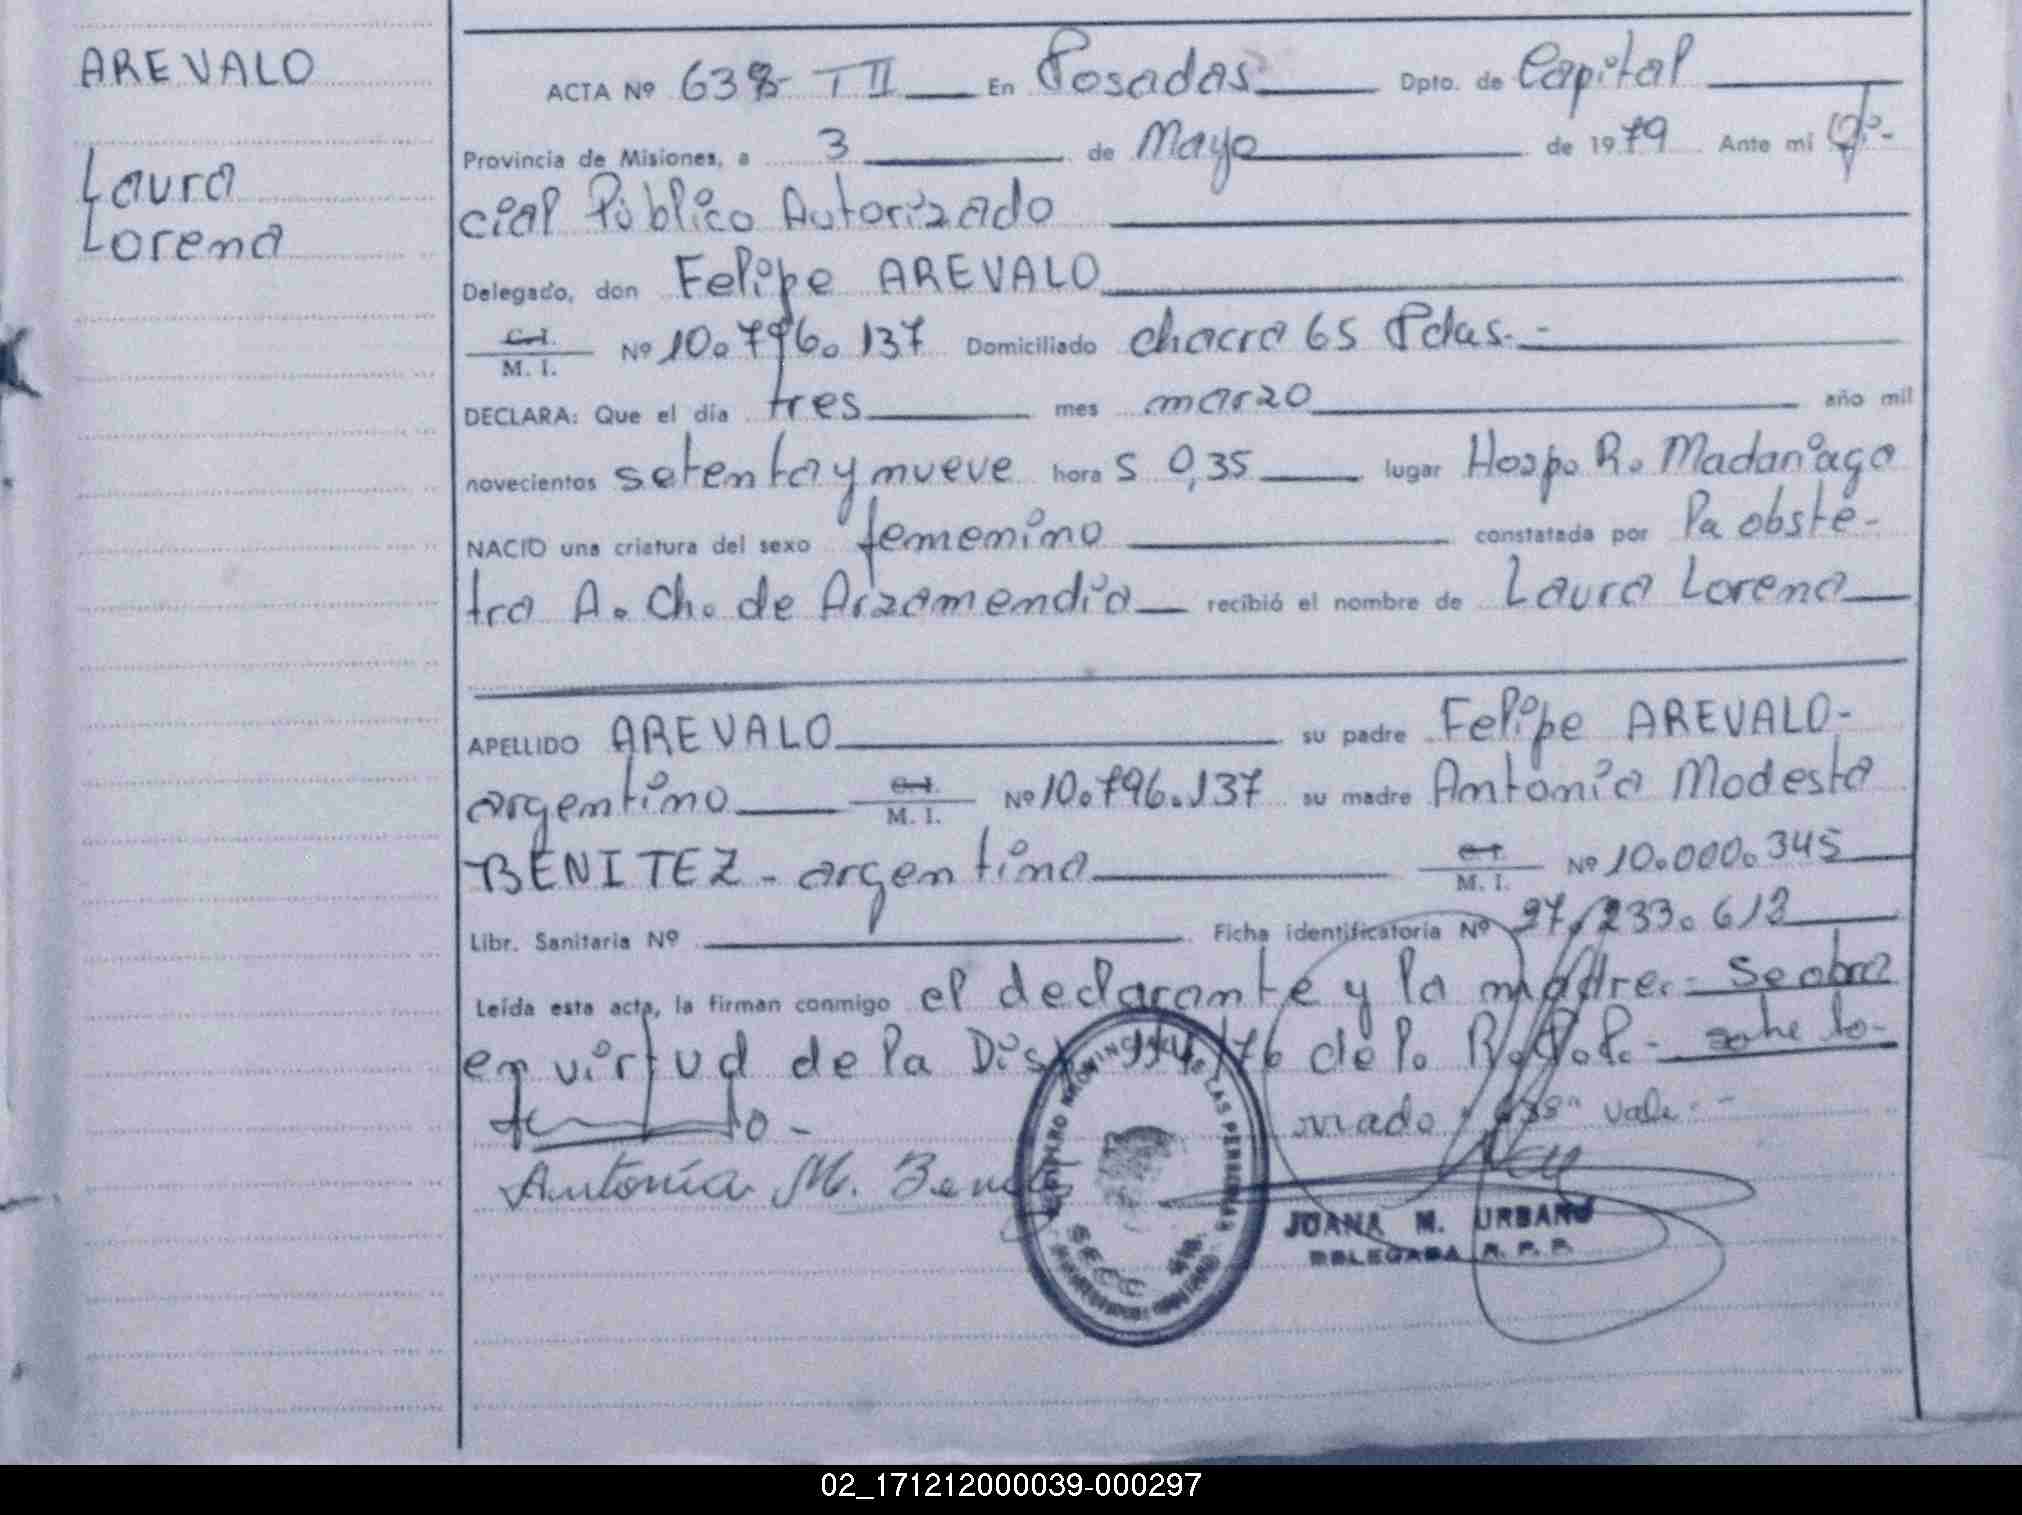 AREVALO
Laura
Lorena
ACTA Nº 638 T II En Posadas Dpto. de Capital
Provincia de Misiones, a 3 de Mayo de 1979 Ante mi Ofi-
cial Público Autorizado
Delegado, don Felipe AREVALO
C.I. M. I. Nº 10.796.137 Domiciliado chacra 65 Pdas.-
DECLARA: Que el día tres mes marzo año mil
novecientos setenta y nueve hora s 0,35 lugar Hosp. R. Madariaga
NACIO una criatura del sexo femenino constatada por la obste-
tra A. Ch. de Arizamendia recibió el nombre de Laura Lorena
APELLIDO AREVALO su padre Felipe AREVALO-
argentino C.I. M. I. Nº 10.796.137 su madre Antonia Modesta
BENITEZ - argentina C.I. M. I. Nº 10.000.345
Libr. Sanitaria Nº Ficha identificatoria Nº 27.233.613
Leída esta acta, la firman conmigo el declarante y la madre.- Se obra
en virtud de la Disp. /76 de la R.P.P.- sobre bo-
rrado: "638" vale.-
Antonia M. Benitez
REGISTRO PROVINCIAL DE LAS PERSONAS
SECC
JUANA M. URBANO
DELEGADA R. P. P.
02_171212000039-000297